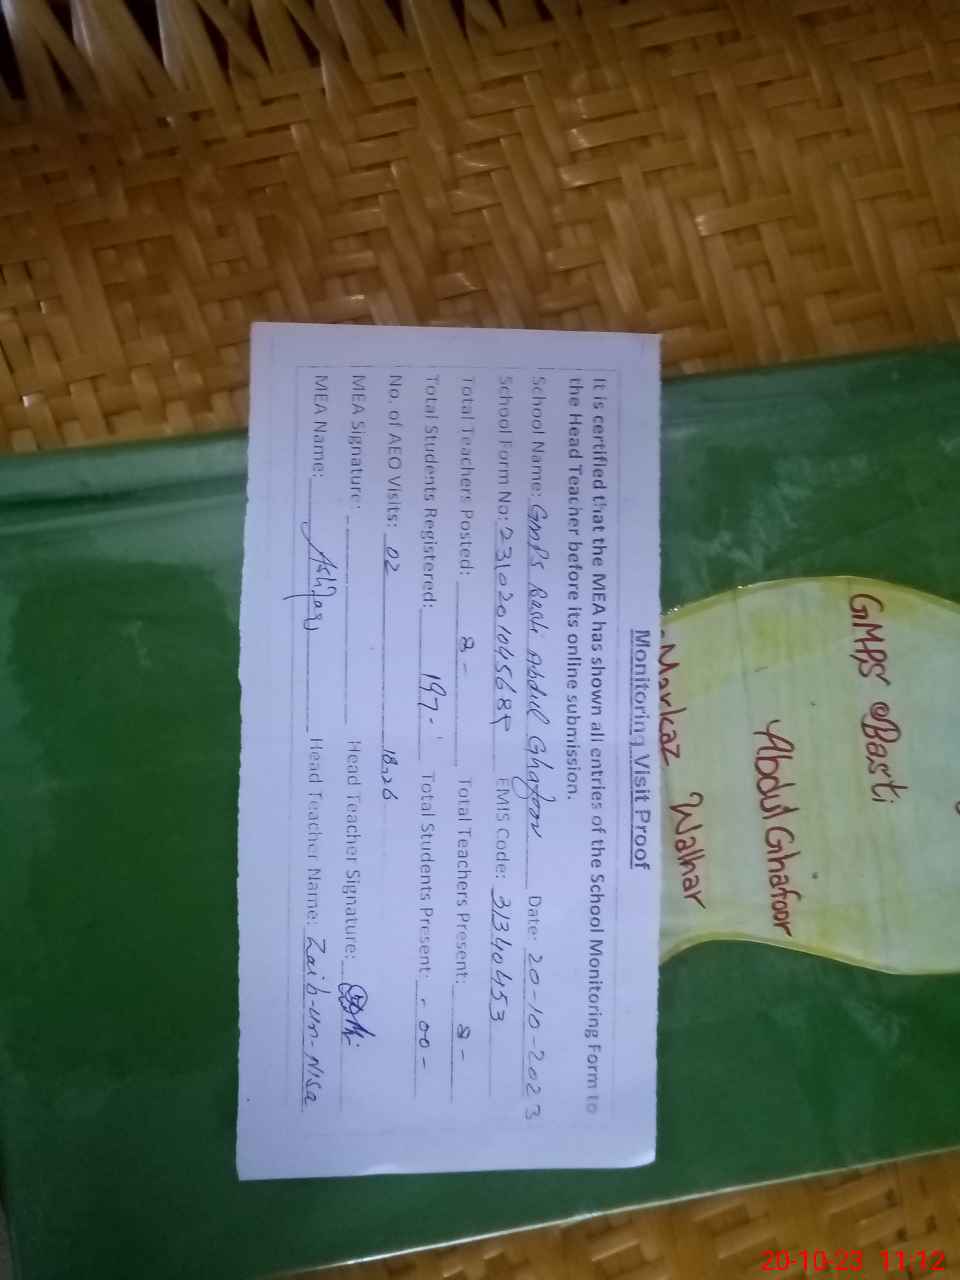 GMPS Basti
Abdul Ghafoor
Markaz Walhar
Monitoring Visit Proof
It is certified that the MEA has shown all entries of the School Monitoring Form to
the Head Teacher before its online submission.
School Name: GMPS Basti Abdul Ghafoor Date: 20-10-2023
School Form No: EMIS Code: 31340453
Total Teachers Posted: Total Teachers Present:
Total Students Registered: 197 Total Students Present: -00-
No. of AEO Visits: 02 18,26
MEA Signature: Head Teacher Signature:
MEA Name: Ashfaq Head Teacher Name: Zaib-un-Nisa
20-10-23 11:12